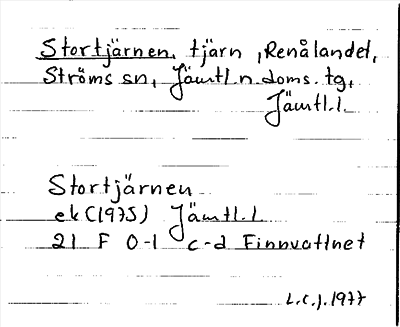 Stortjärnen, tjärn, Renålandet,
Ströms sn, Jämtl. n. doms. tg,
Jämtl. l.
Stortjärnen
ek (1975) Jämtl. l
21 F 0-1 c-d Finnvattnet
L.C.J. 1977